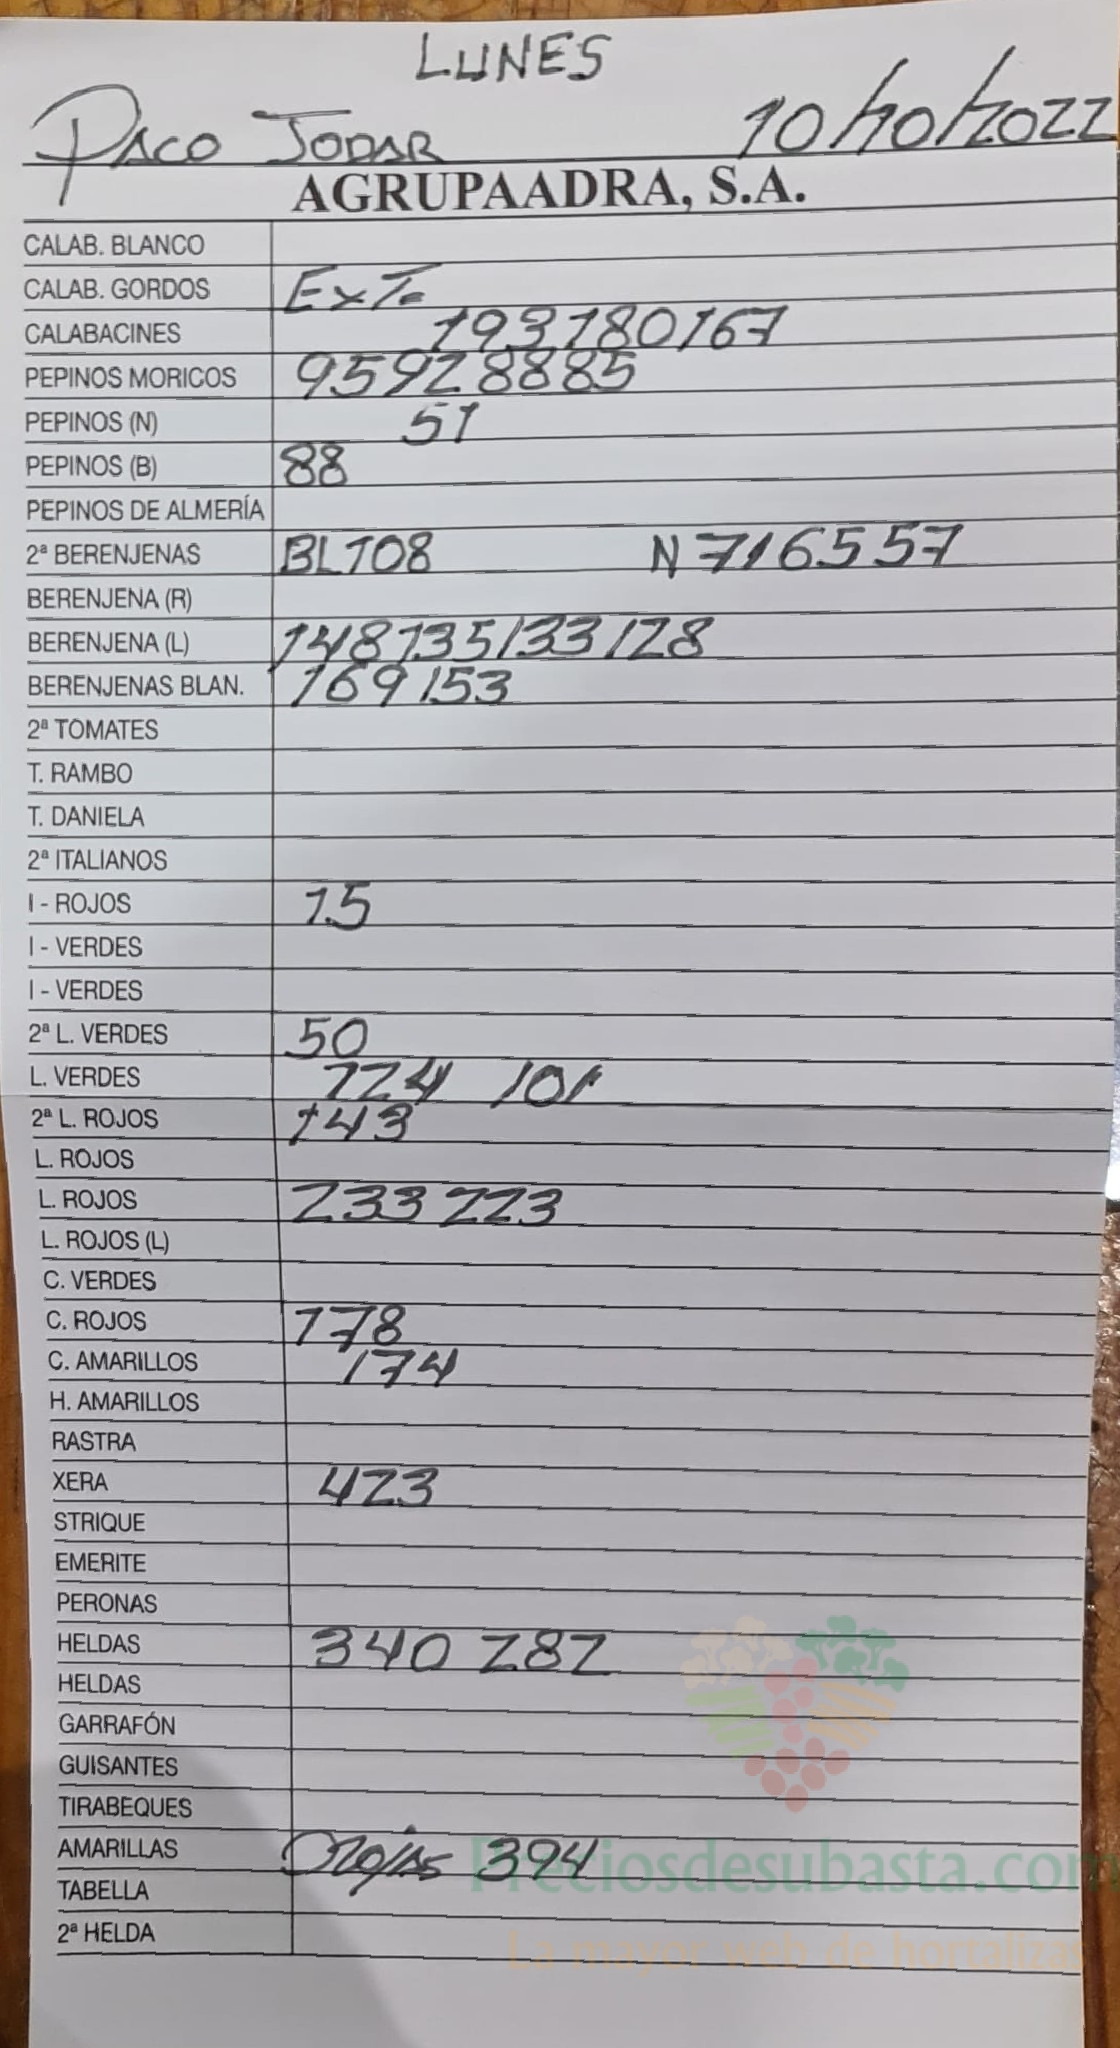 LUNES
PACO JODAR 10/10/2022
AGRUPAADRA, S.A.
CALAB. BLANCO
CALAB. GORDOS ExT.
CALABACINES 193 180 167
PEPINOS MORICOS 95 92 88 85
PEPINOS (N) 51
PEPINOS (B) 88
PEPINOS DE ALMERÍA
2ª BERENJENAS BL 108 N 71 65 57
BERENJENA (R)
BERENJENA (L) 148 135 133 128
BERENJENAS BLAN. 169 153
2ª TOMATES
T. RAMBO
T. DANIELA
2ª ITALIANOS
I - ROJOS 15
I - VERDES
I - VERDES
2ª L. VERDES 50
L. VERDES 124 101
2ª L. ROJOS 143
L. ROJOS
L. ROJOS 233 223
L. ROJOS (L)
C. VERDES
C. ROJOS 178
C. AMARILLOS 174
H. AMARILLOS
RASTRA
XERA 423
STRIQUE
EMERITE
PERONAS
HELDAS 340 282
HELDAS
GARRAFÓN
GUISANTES
TIRABEQUES
AMARILLAS Rojas 394
Preciosdesubasta.com
TABELLA
2ª HELDA
La mayor web de hortalizas